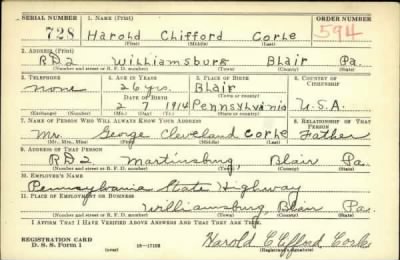 SERIAL NUMBER 1. NAME (Print) ORDER NUMBER
728 Harold Clifford Corle 594
(First) (Middle) (Last)
2. ADDRESS (Print)
RD2 Williamsburg Blair Pa.
(Number and street or R. F. D. number) (Town) (County) (State)
3. TELEPHONE 4. AGE IN YEARS 5. PLACE OF BIRTH 6. COUNTRY OF CITIZENSHIP
none 26 yrs. Blair
DATE OF BIRTH (Town or county)
2 7 1914 Pennsylvania U.S.A.
(Exchange) (Number) (Mo.) (Day) (Yr.) (State or country)
7. NAME OF PERSON WHO WILL ALWAYS KNOW YOUR ADDRESS 8. RELATIONSHIP OF THAT PERSON
Mr. George Cleveland Corle Father
(Mr., Mrs., Miss) (First) (Middle) (Last)
9. ADDRESS OF THAT PERSON
RD2 Martinsburg, Blair Pa.
(Number and street or R. F. D. number) (Town) (County) (State)
10. EMPLOYER'S NAME
Pennsylvania State Highway
11. PLACE OF EMPLOYMENT OR BUSINESS
Williamsburg, Blair Pa.
(Number and street or R. F. D. number) (Town) (County) (State)
I AFFIRM THAT I HAVE VERIFIED ABOVE ANSWERS AND THAT THEY ARE TRUE.
REGISTRATION CARD
D. S. S. Form 1 (over) Harold Clifford Corle
(Registrant's signature)